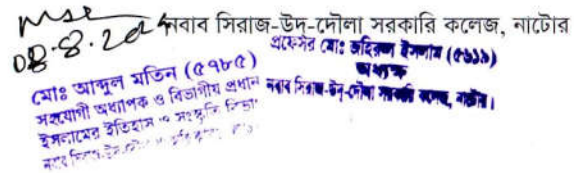 নবাব সিরাজ-উদ-দৌলা সরকারি কলেজ, নাটোর
08.8.2024
মোঃ আব্দুল মতিন (৫৭৮৫)
সহযোগী অধ্যাপক ও বিভাগীয় প্রধান
ইসলামের ইতিহাস ও সংস্কৃতি বিভাগ
প্রফেসর মোঃ জহিরুল ইসলাম (৫৬১৯)
অধ্যক্ষ
নবাব সিরাজ-উদ্-দৌলা সরকারি কলেজ, নাটোর।